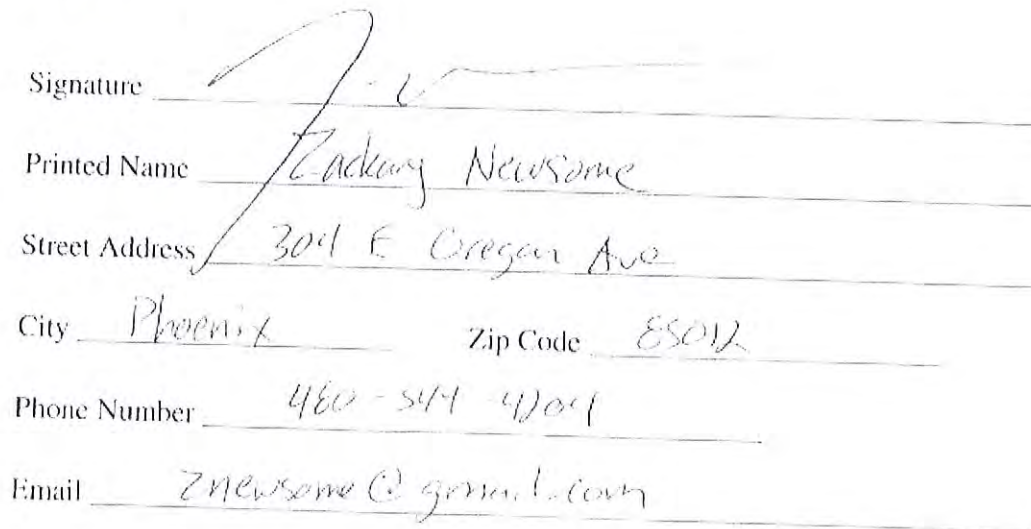 Signature
Printed Name Zackary Newsome
Street Address 304 E Oregon Ave
City Phoenix Zip Code 85012
Phone Number 480-544-4204
Email znewsome@gmail.com